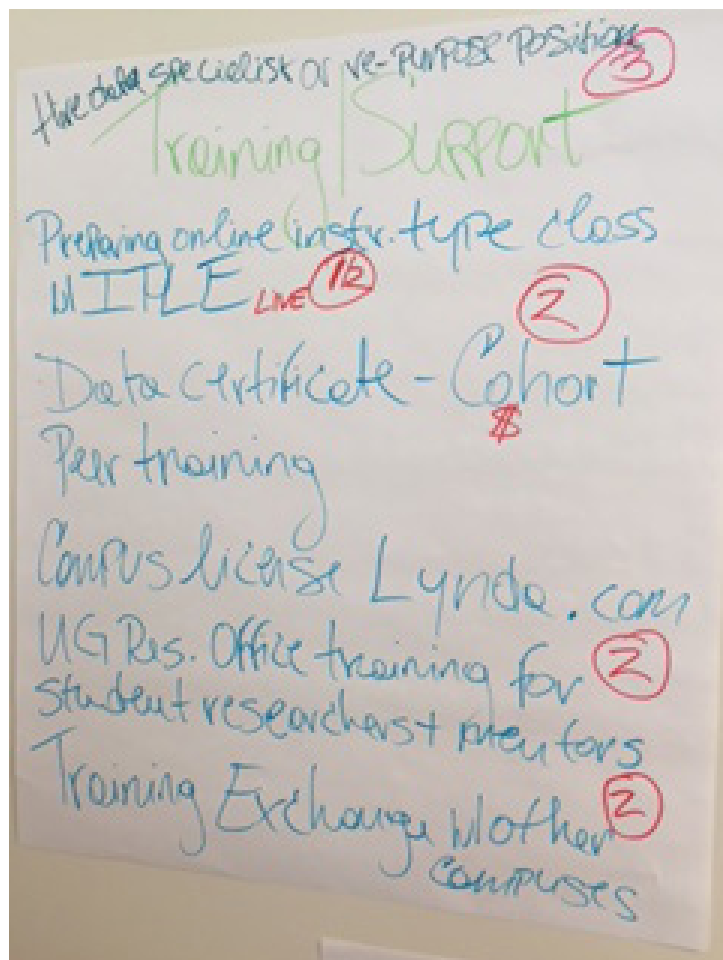 Hire data specialist or re-purpose position 3
Training/Support
Preparing online instr. type class
MITLE LIVE
Data Certificate - Cohort 2
$
Peer training
Campus license Lynda.com
UG Res. Office training for 2
student researchers + mentors
Training Exchange w/other 2
campuses